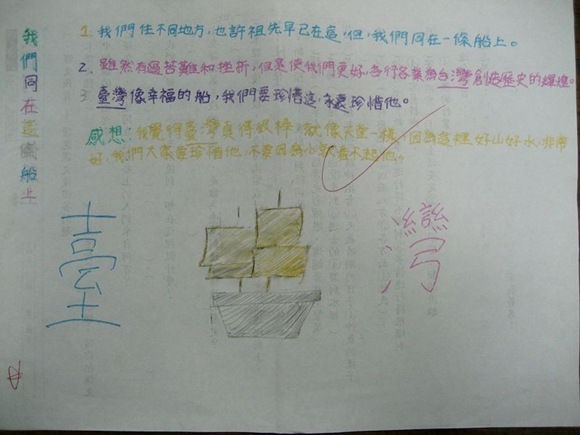 我們同在這條船上
1. 我們住不同地方，也許祖先早已在這，但，我們同在一條船上。
2. 雖然有過苦難和挫折，但是使我們更好，各行各業為台灣創造歷史的輝煌。
3. 臺灣像幸福的船，我們要珍惜這，永遠珍惜他。
感想：我覺得臺灣真得很棒，就像天堂一樣，因為這裡好山好水，非常
好，我們大家要珍惜他，不要因為小就看不起他。
臺
灣